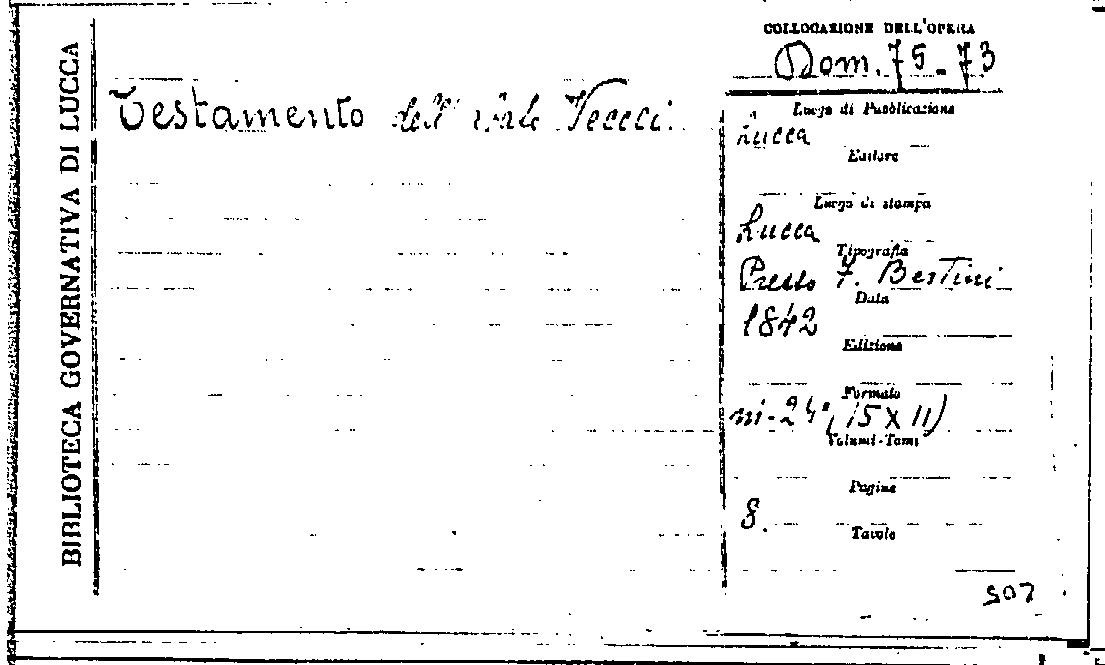 BIBLIOTECA GOVERNATIVA DI LUCCA
COLLOCAZIONE DELL'OPERA
Dom. 75-73
Testamento dell'
Luogo di Pubblicazione
Lucca
Editore
Luogo di stampa
Lucca
Tipografia
Presso F. Bertini
Data
1842
Edizione
Formato
in-24° (15 X 11)
Volumi-Tomi
Pagine
8.
Tavole
507